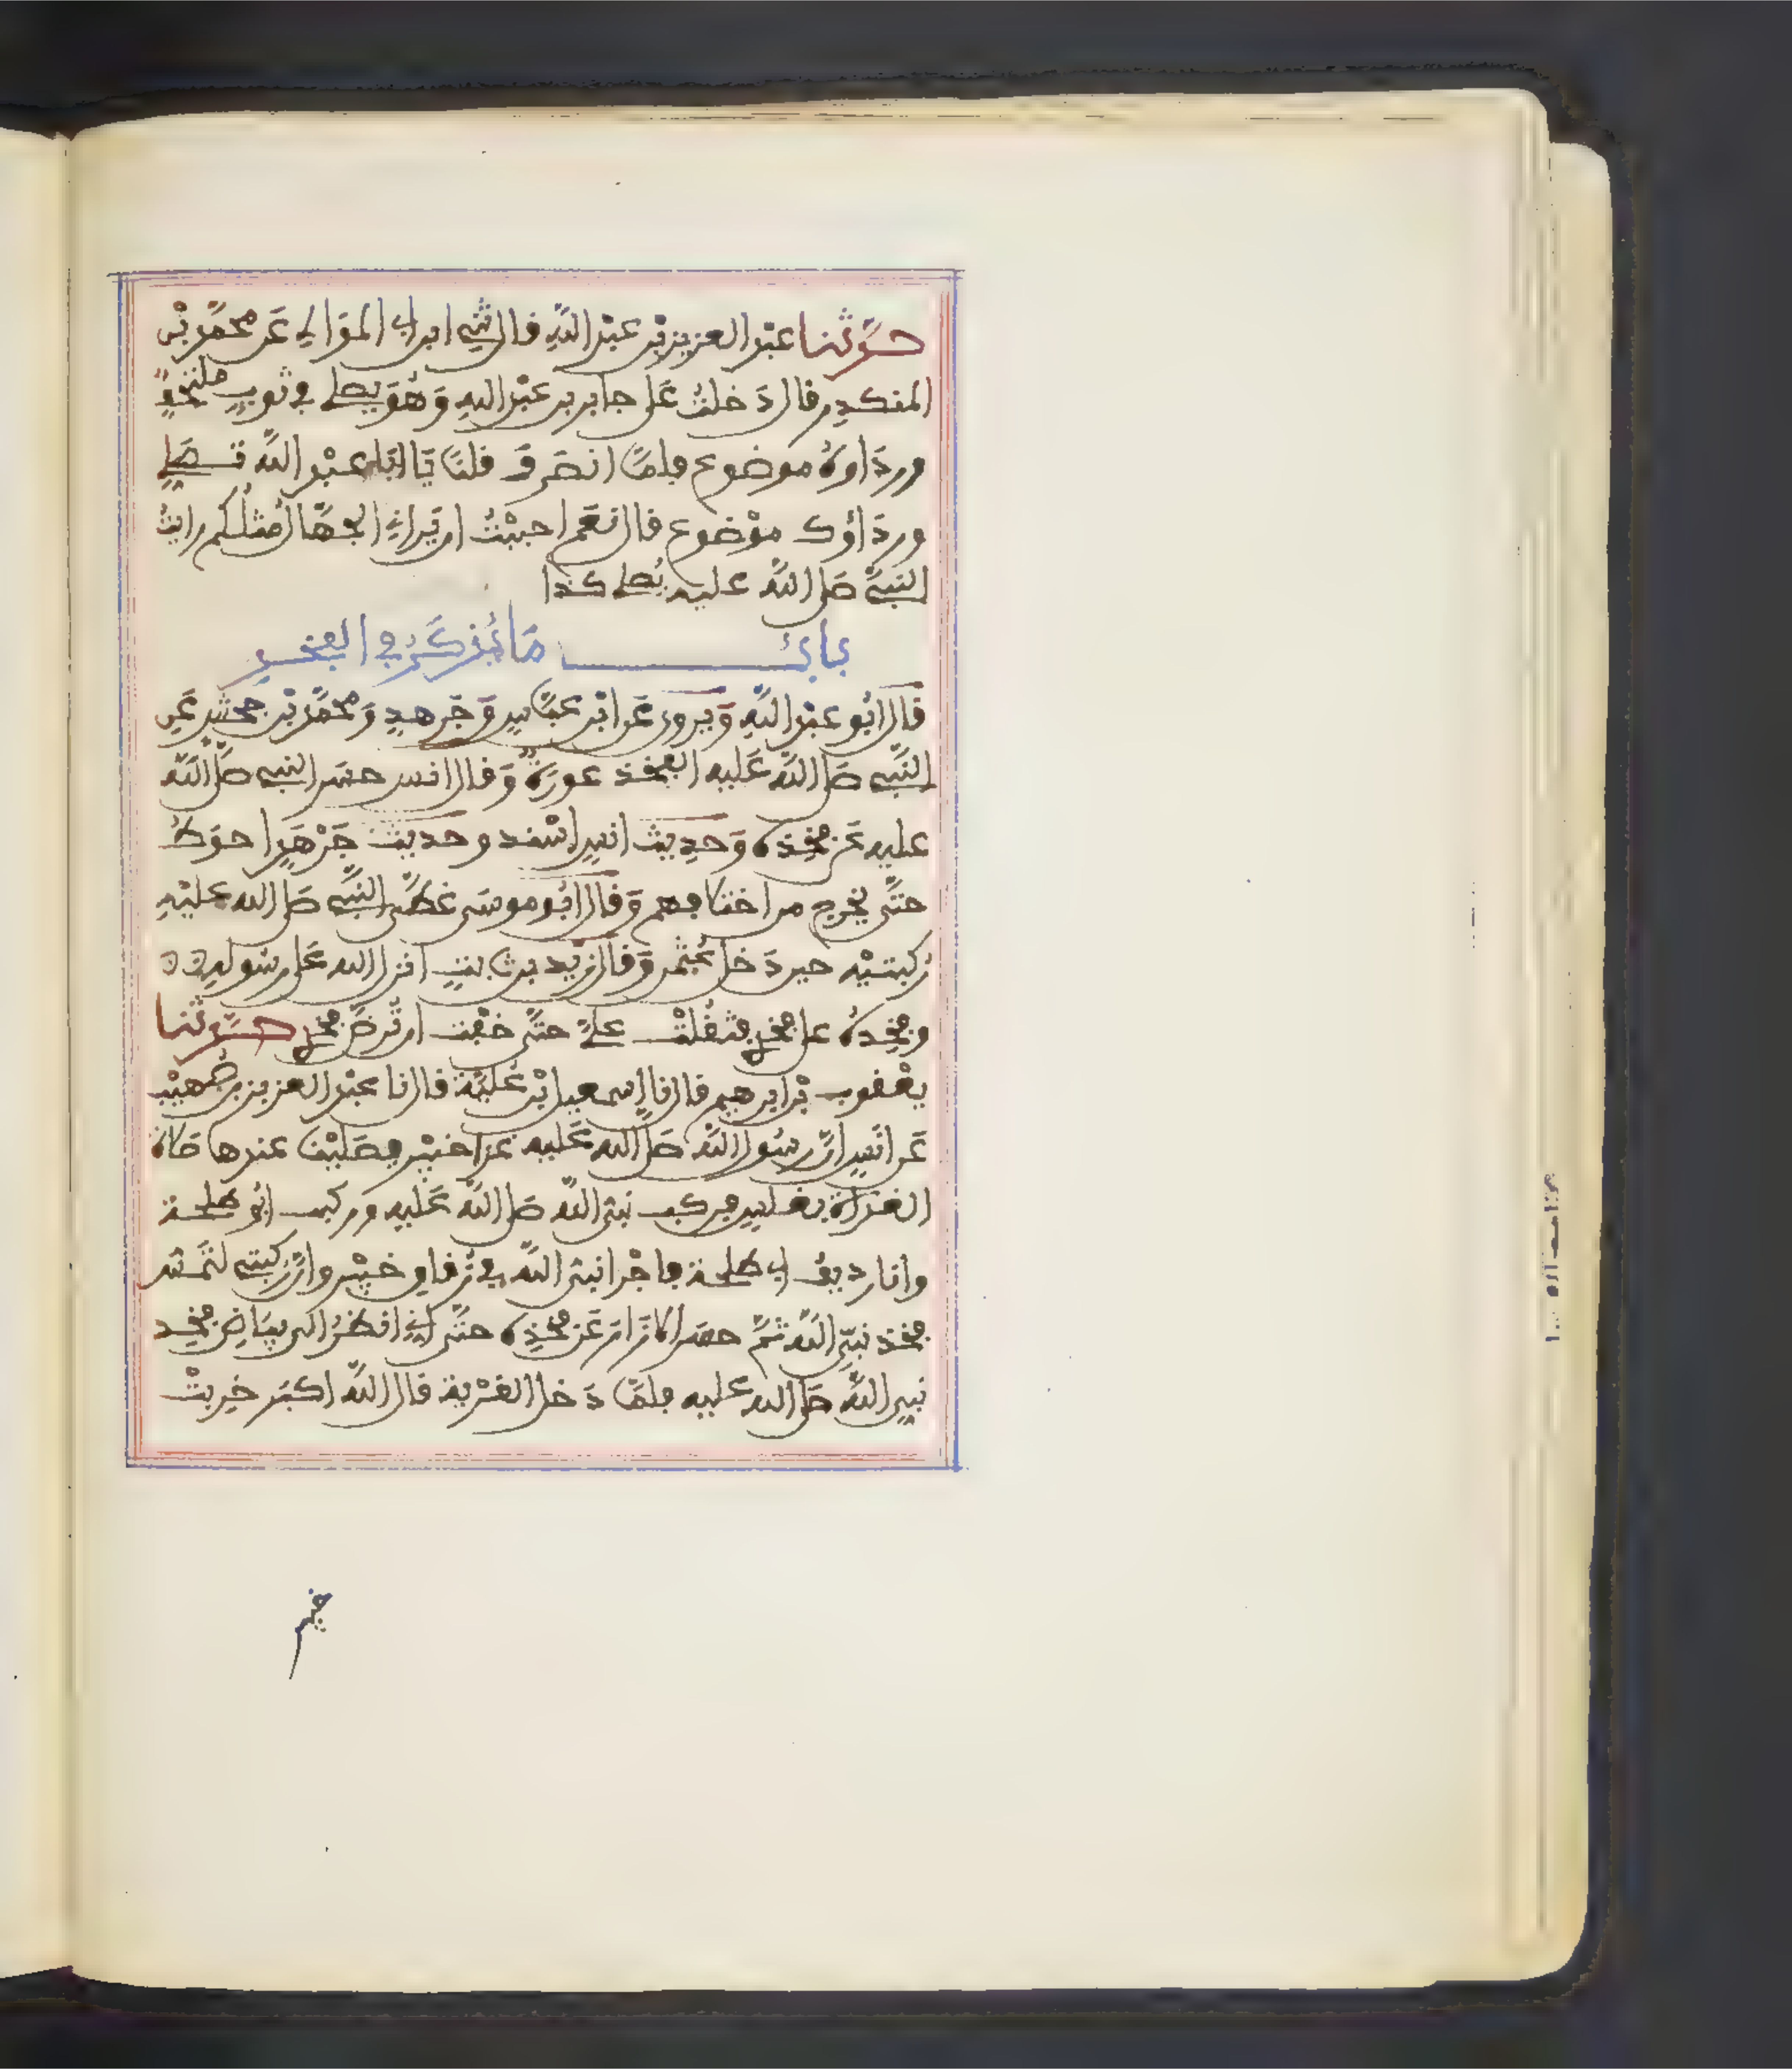 حدثنا عبد العزيز بن عبد الله قال ثني ابن ابي الموالي عن محمد بن
المنكدر قال دخلت على جابر بن عبد الله وهو يصلي في ثوب ملتحفا
ورداوه موضوع فلما انصرف قلنا يا ابا عبد الله تصلي
ورداؤك موضوع قال نعم احببت ان يراني الجهال مثلكم رايت
النبي صلى الله عليه يصلي كذا
باب ما يذكر في الفخذ
قال ابو عبد الله ويروى عن ابن عباس وجرهد ومحمد بن جحش عن
النبي صلى الله عليه الفخذ عورة وقال انس حسر النبي صلى الله
عليه عن فخذه وحديث انس اسند وحديث جرهد احوط
حتى يخرج من اختلافهم وقال ابو موسى غطى النبي صلى الله عليه
ركبتيه حين دخل عثمن وقال زيد بن ثابت انزل الله على رسوله
وفخذه على فخذي فثقلت علي حتى خفت ان ترض فخذي حدثنا
يعقوب بن ابرهيم قال نا اسمعيل بن علية قال نا عبد العزيز بن صهيب
عن انس ان رسول الله صلى الله عليه غزا خيبر فصلينا عندها صلاة
الغداة بغلس فركب نبي الله صلى الله عليه وركب ابو طلحة
وانا رديف ابي طلحة فاجرا نبي الله في زقاق خيبر وان ركبتي لتمس
فخذ نبي الله ثم حسر الازار عن فخذه حتى اني انظر الى بياض فخذ
نبي الله صلى الله عليه فلما دخل القرية قال الله اكبر خربت